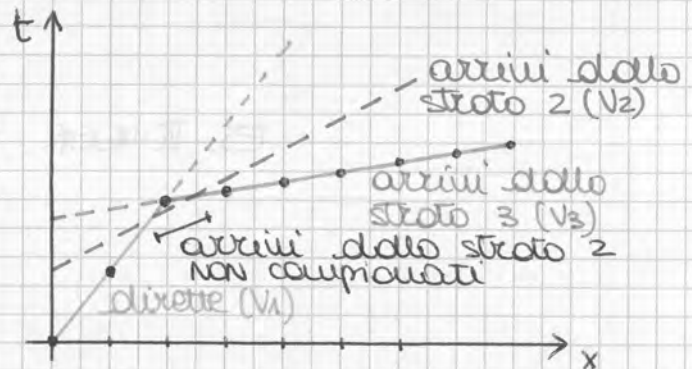 t
arrivi dallo
strato 2 (V2)
arrivi dallo
strato 3 (V3)
arrivi dallo strato 2
NON campionati
dirette (V1)
x